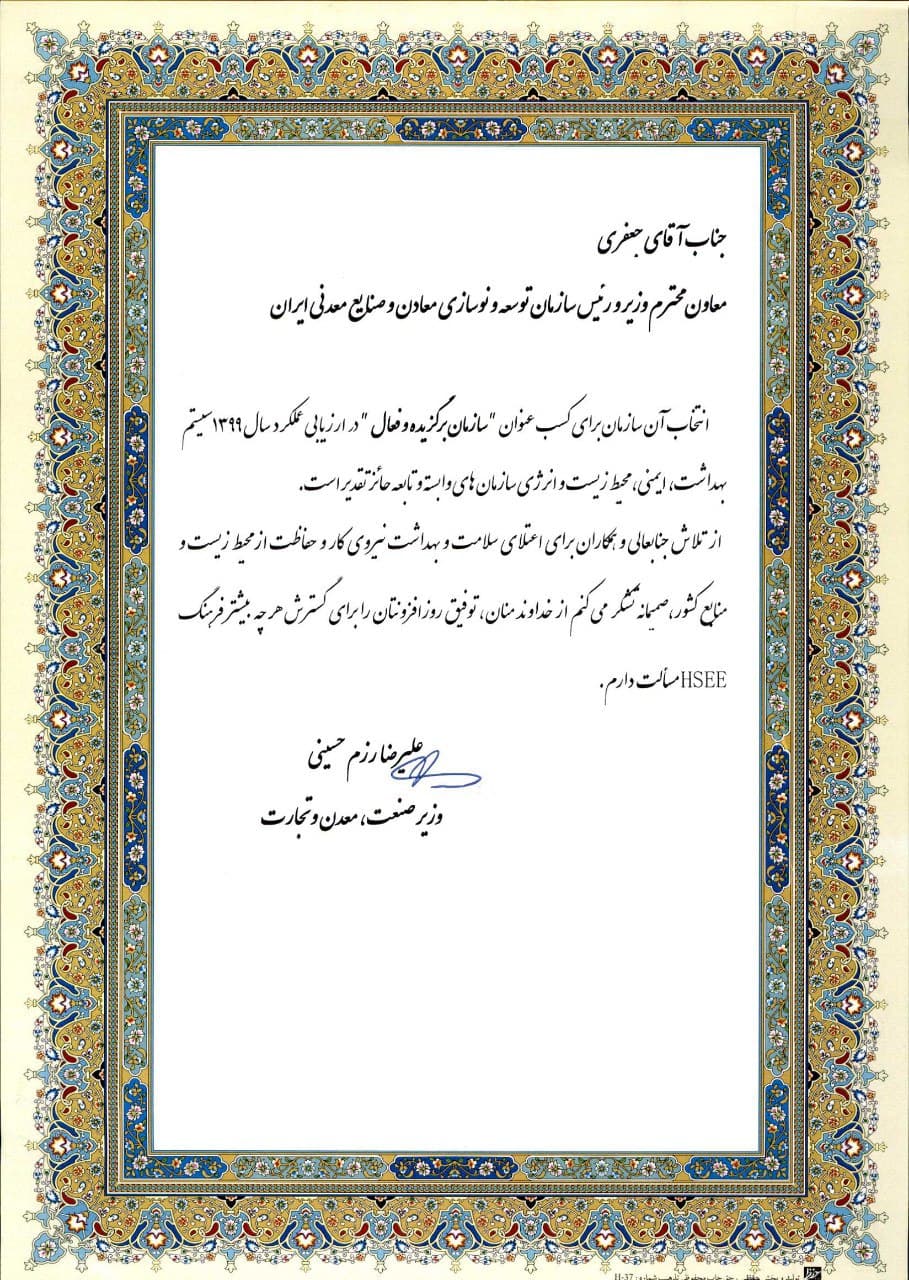 جناب آقای جعفری
معاون محترم وزیر و رئیس سازمان توسعه و نوسازی معادن و صنایع معدنی ایران
انتخاب آن سازمان برای کسب عنوان "سازمان برگزیده و فعال" در ارزیابی عملکرد سال ۱۳۹۹ سیستم
بهداشت، ایمنی، محیط زیست و انرژی سازمان های وابسته و تابعه حائز تقدیر است.
از تلاش جنابعالی و همکاران برای اعتلای سلامت و بهداشت نیروی کار و حفاظت از محیط زیست و
منابع کشور، صمیمانه تشکر می کنم از خداوند منان، توفیق روزافزونتان را برای گسترش هر چه بیشتر فرهنگ
HSEE مسألت دارم.
علیرضا رزم حسینی
وزیر صنعت، معدن و تجارت
تولید و پخش حقیقی - حق چاپ محفوظ تذهیب شماره: H-37